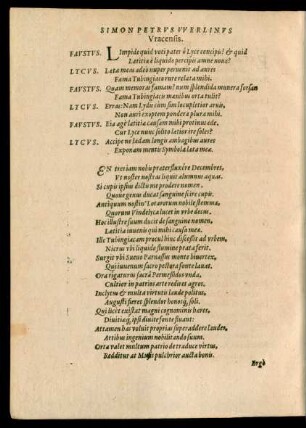 SIMON PETRVS VVERLINVS
Vracensis.
FAVSTVS. Limpide quid voti pater ô Lyce concipis? & quid
Latitiæ liquido percipis amne nouæ?
LYCVS. Læta meas adeò nuper peruenit ad aures
Fama Tubingiaco rure relata mihi.
FAVSTVS. Quam memoras famam? num splendida munera forsan
Fama Tubingiacis manibus orta tulit?
LYCVS. Erras: Nam Lydû cum sim locupletior aruis,
Non auri exoptem pondera plura mihi.
FAVSTVS. Eia age lætitiæ causam mihi protinus edas,
Cur Lyce nunc solito lætior ire soles?
LYCVS. Accipe ne sedam longis ambagibus aures
Exponam mentis Symbola læta meæ.
EN tres iam nobis præterfluxêre Decembres,
Vt noster nostras liquit alumnus aquas.
Si cupis ipsius dicturus nomen,
Quoue genus ducat sanguine scire cupis.
Antiquum nostin' Lotarorum nobile stemma,
Quorum Vindelyca lucet in vrbe decus.
Hoc illustre suum ducit de sanguine nomen,
Lætitia inuenis qui mihi causa meæ.
Ille Tubingiacam procul hinc discessit ad vrbem,
Nicrus vbi liquido flumine prata ferit.
Surgit vbi Sueuo Parnassus monte biuertex,
Qui iuuenum sacro pectora fonte lauat.
Ora rigaturus sacra Permeßidos vnda,
Cultior in patrios arte rediret agros.
Inclytus & multa virtutis laude politus,
Augusti fieret splendor honorq́; soli.
Qui licet existat magni cognominis hæres,
Diuitiæq́; ipsi diuite sorte fluant:
Attamen has voluit proprias superaddere laudes,
Artibus ingenium nobilitando suum.
Orta valet multum patrio de traduce virtus,
Redditur at Musis pulchrior aucta bonis.
Ergò